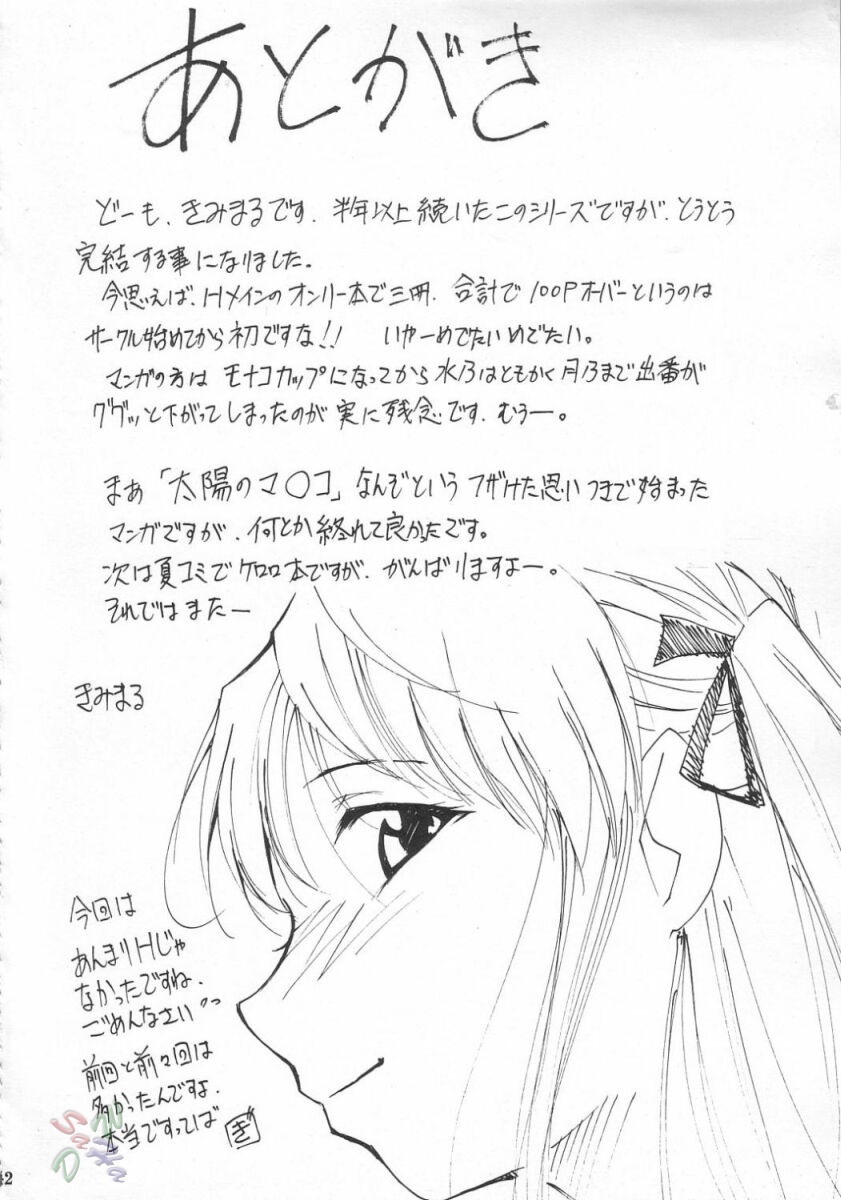 あとがき
どーも、きみまるです、半年以上続いたこのシリーズですが、とうとう
完結する事になりました。
今思えば、Hメインのオンリー本で三冊、合計で100Pオーバーというのは
サークル始めてから初ですな!! いやーめでたいめでたい。
マンガの方はモナコカップになってから水乃はともかく月乃まで出番が
ググッと下がってしまったのが実に残念です、むぅー。
まぁ「太陽のマ〇コ」なんぞというフザけた思いつきで始まった
マンガですが、何とか終れて良かったです。
次は夏コミでケロロ本ですが、がんばりますよー。
それではまたー
きみまる
今回は
あんまりHじゃ
なかったですね、
ごめんなさい
前回と前々回は
多かったんですよ、
本当ですってば
ぎ
42